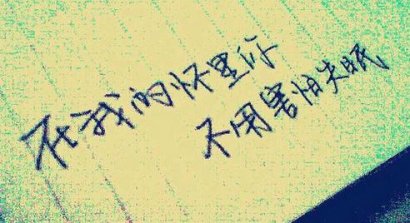 在我的怀里你
不用害怕失眠